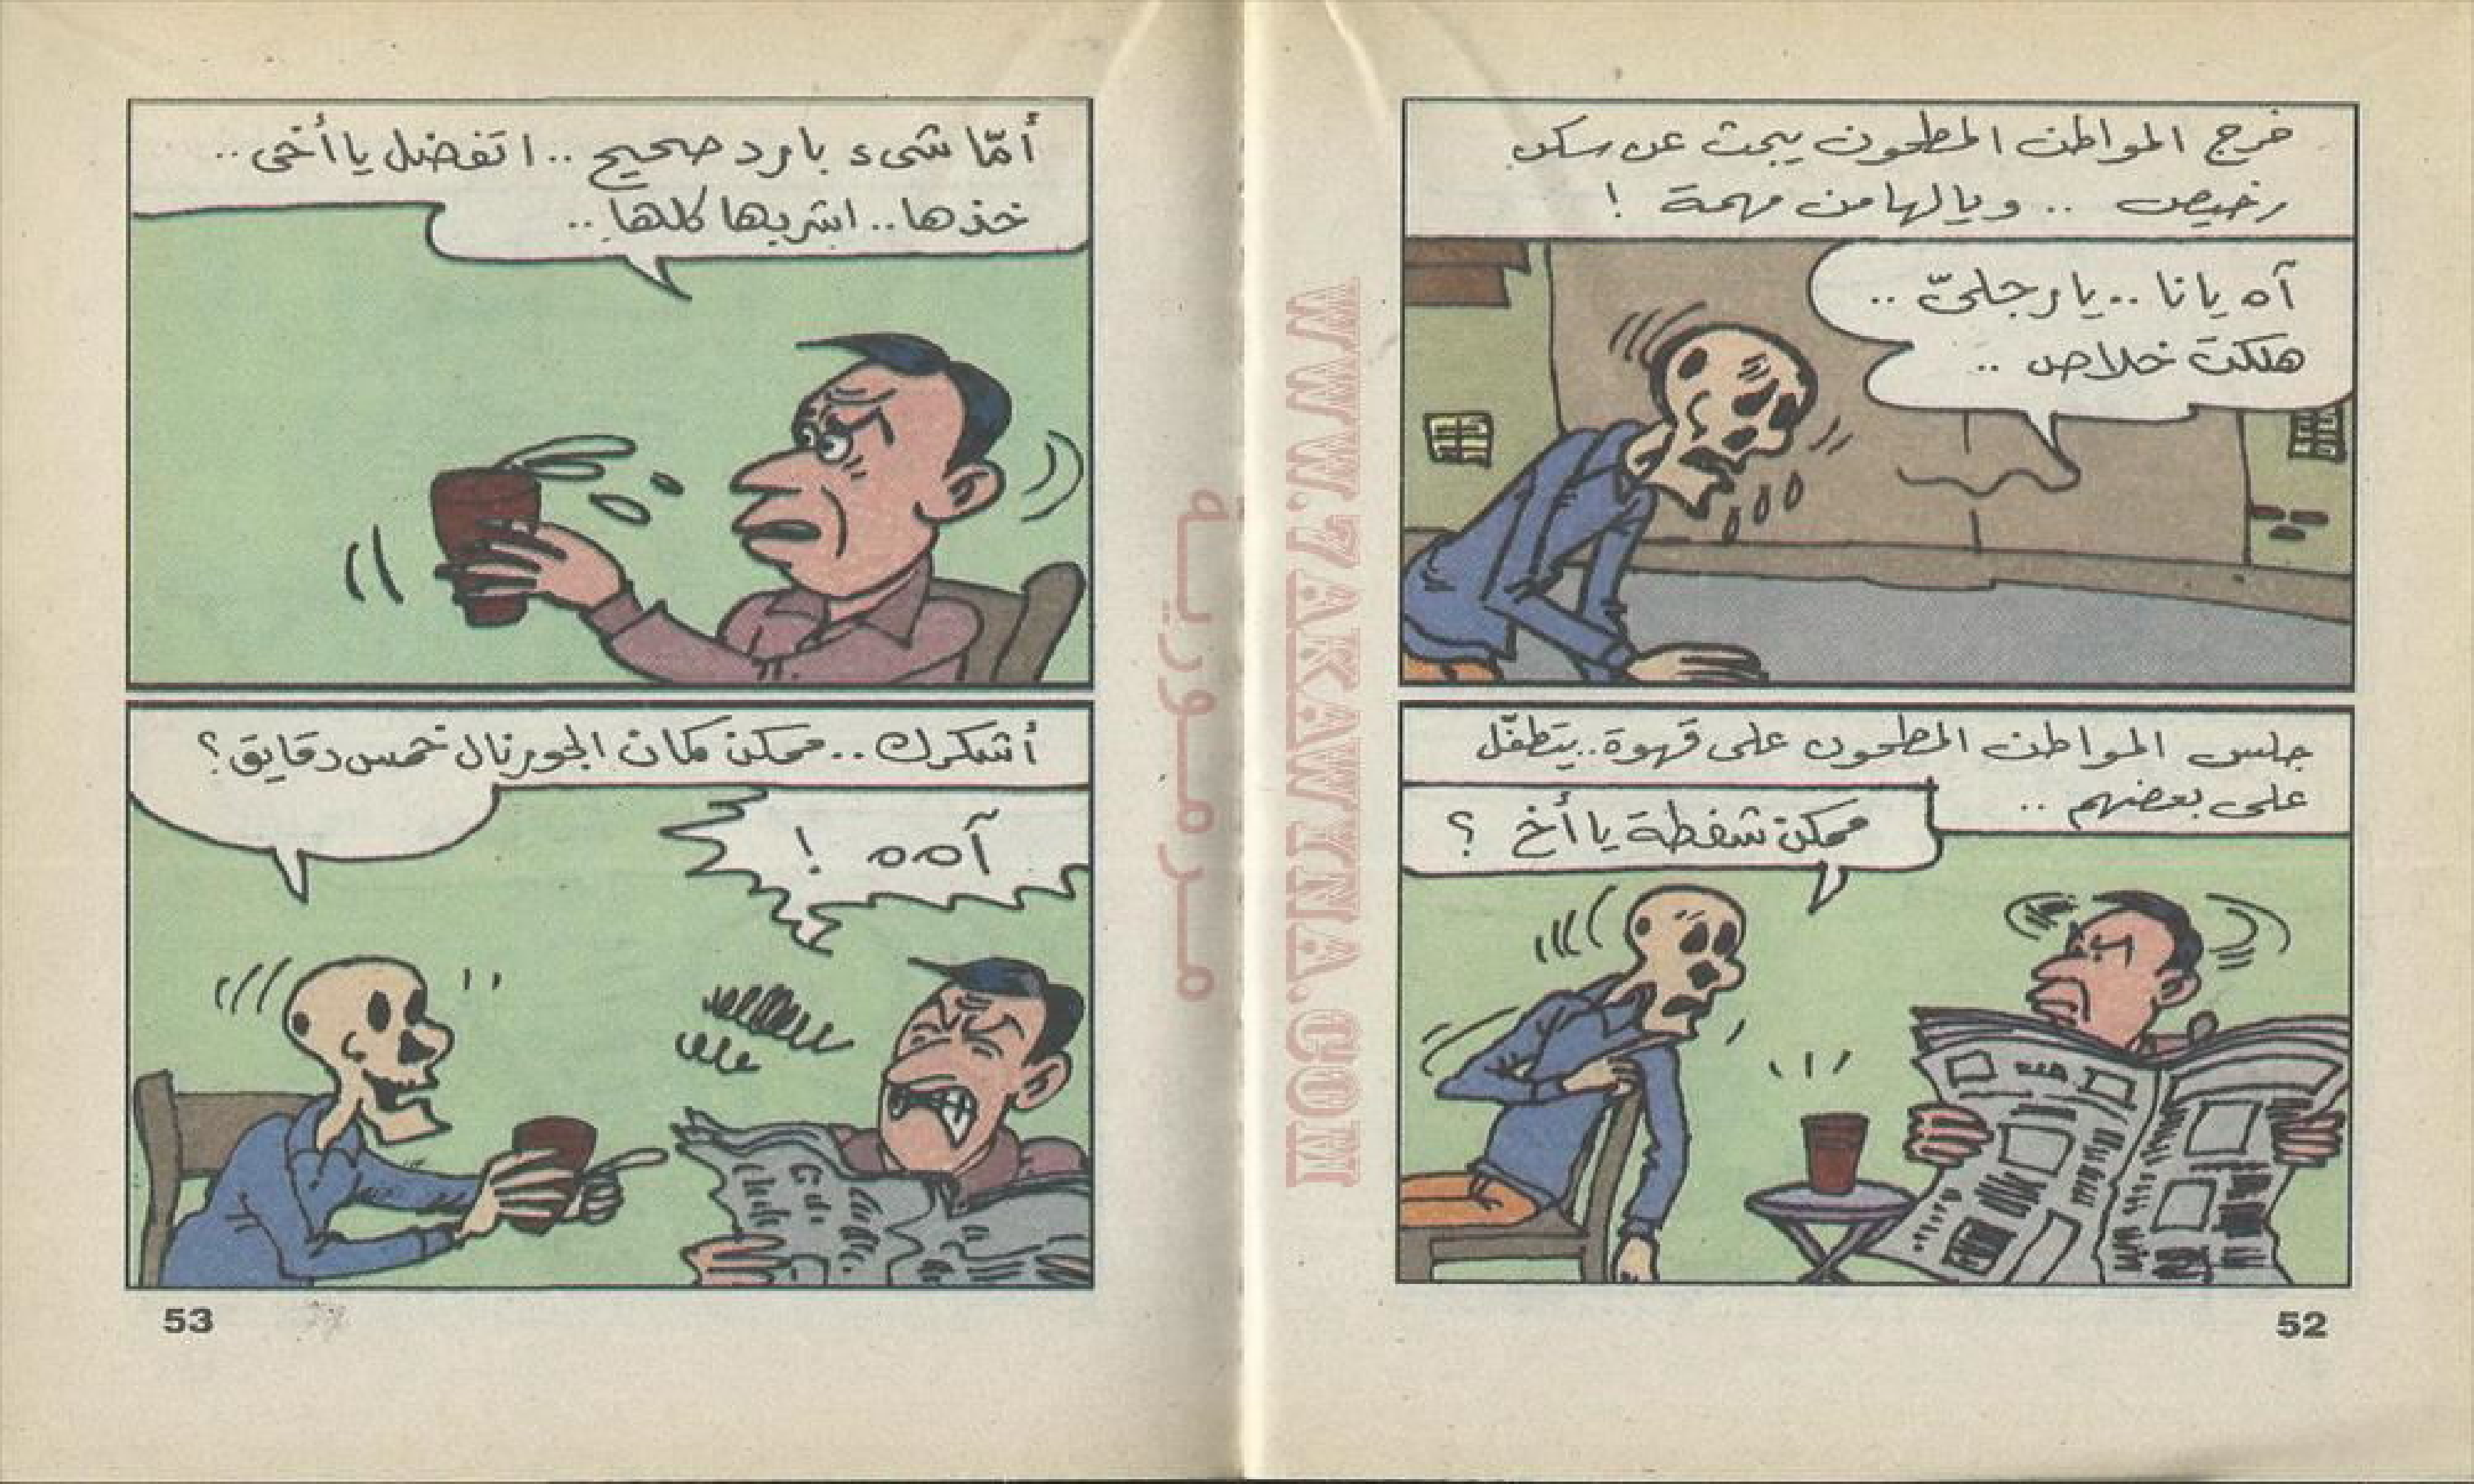 خرج المواطن المطحون يبحث عن سكن
رخيص .. ويالها من مهمة !
آه يانا .. يارجليّ ..
هلكت خلاص ..
جلس المواطن المطحون على قهوة .. يتطفّل
على بعضهم ..
ممكن شفطة يا أخ ؟
52
أمّا شىء بارد صحيح .. اتفضل يا أخى ..
خذها .. اشربها كلها ..
أشكرك .. ممكن كمان الجورنال خمس دقايق ؟
آهه !
53
مرمورية
WWW.7AKAWINA.COM